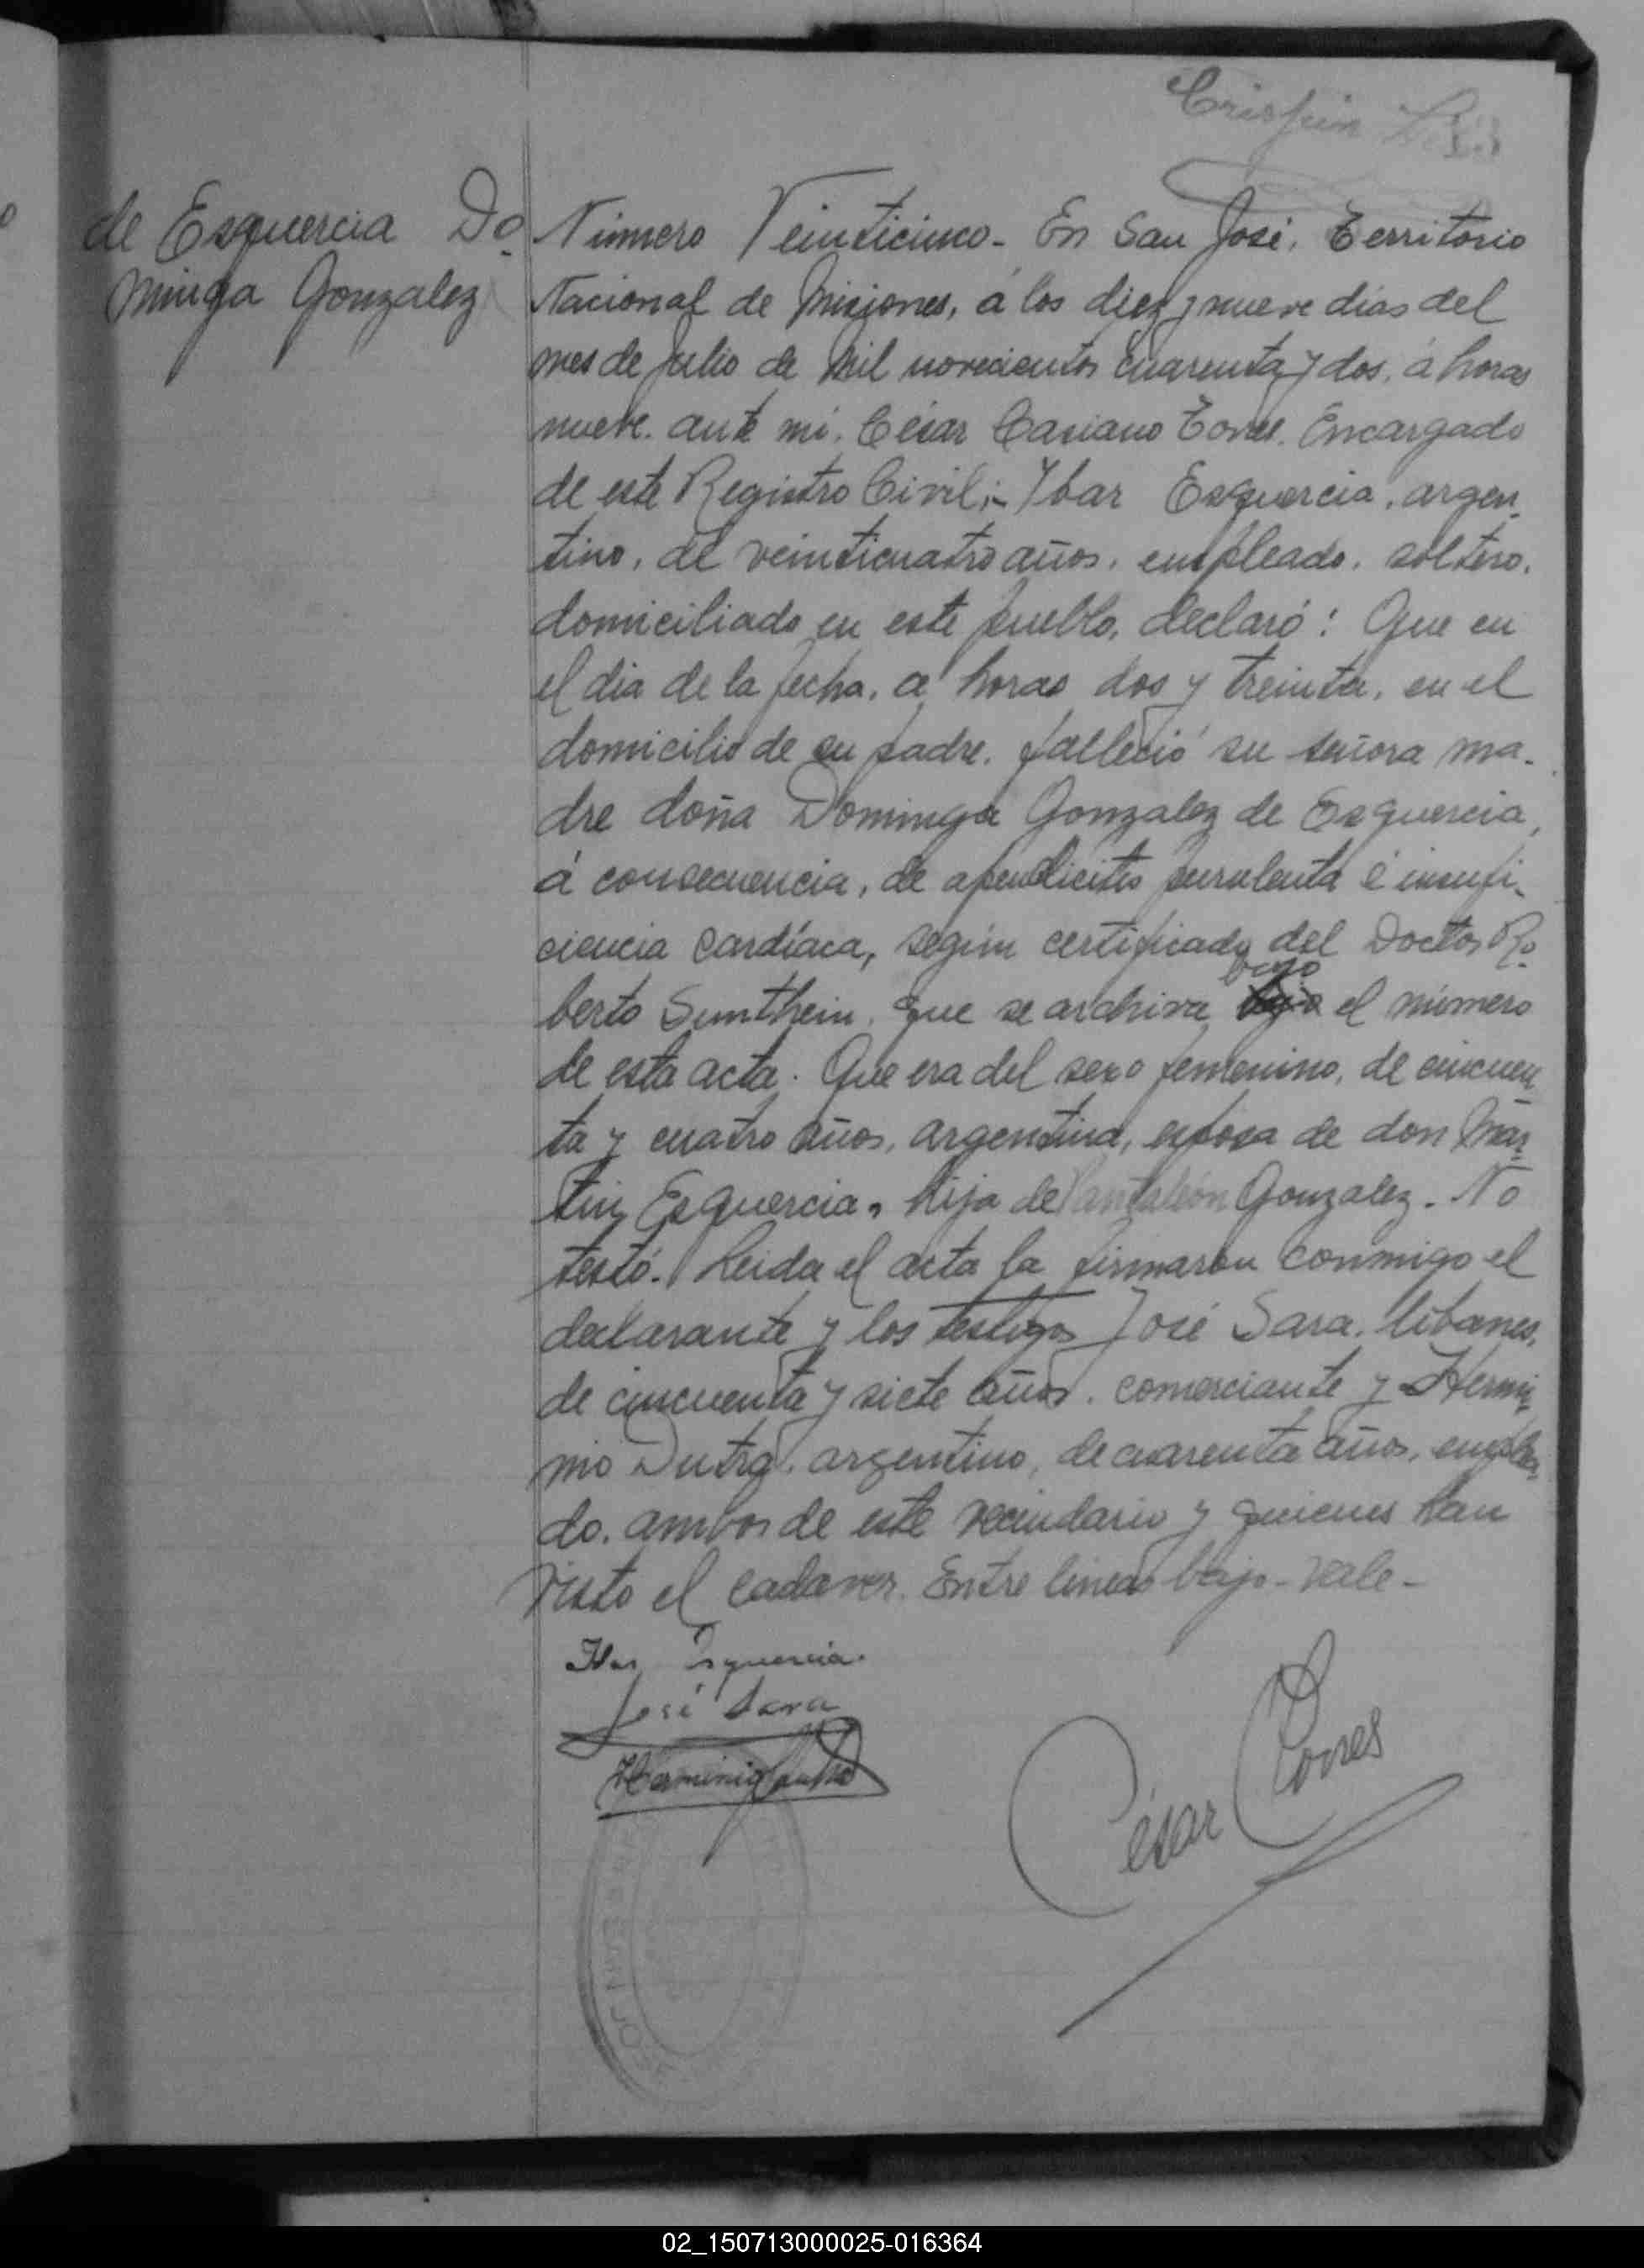 Crispin
de Esquercia Do
minga Gonzalez
Número Veinticinco - En San José, Territorio
Nacional de Misiones, á los diez y nueve dias del
mes de julio de mil novecientos cuarenta y dos, á horas
nueve. ante mi. César Casiano Torres. Encargado
de este Registro Civil; - Ybar Esquercia, argen
tino, de veinticuatro años, empleado, soltero,
domiciliado en este pueblo, declaró: Que en
el dia de la fecha, a horas dos y treinta, en el
domicilio de su padre, falleció su señora ma-
dre doña Dominga Gonzalez de Esquercia,
á consecuencia, de apendicitis purulenta é insufi-
ciencia cardíaca, según certificado del Doctor Ro
bajo
berto Sunthein, que se archiva bajo el número
de esta acta. Que era del sexo femenino, de cincuen
ta y cuatro años, argentina, esposa de don Mar
tin Esquercia, hija de Pantaleón Gonzalez. No
testó. Leida el acta la firmaron conmigo el
declarante y los testigos José Sara, libanes,
de cincuenta y siete años, comerciante y Hermi
nio Dutra, argentino, de cuarenta años, emplea
do, ambos de este vecindario y quienes han
visto el cadaver. Entre lineas bajo - vale -
Ybar Esquercia
José Sara
Herminio Dutra
César Torres
SAN JOSE
02_150713000025-016364